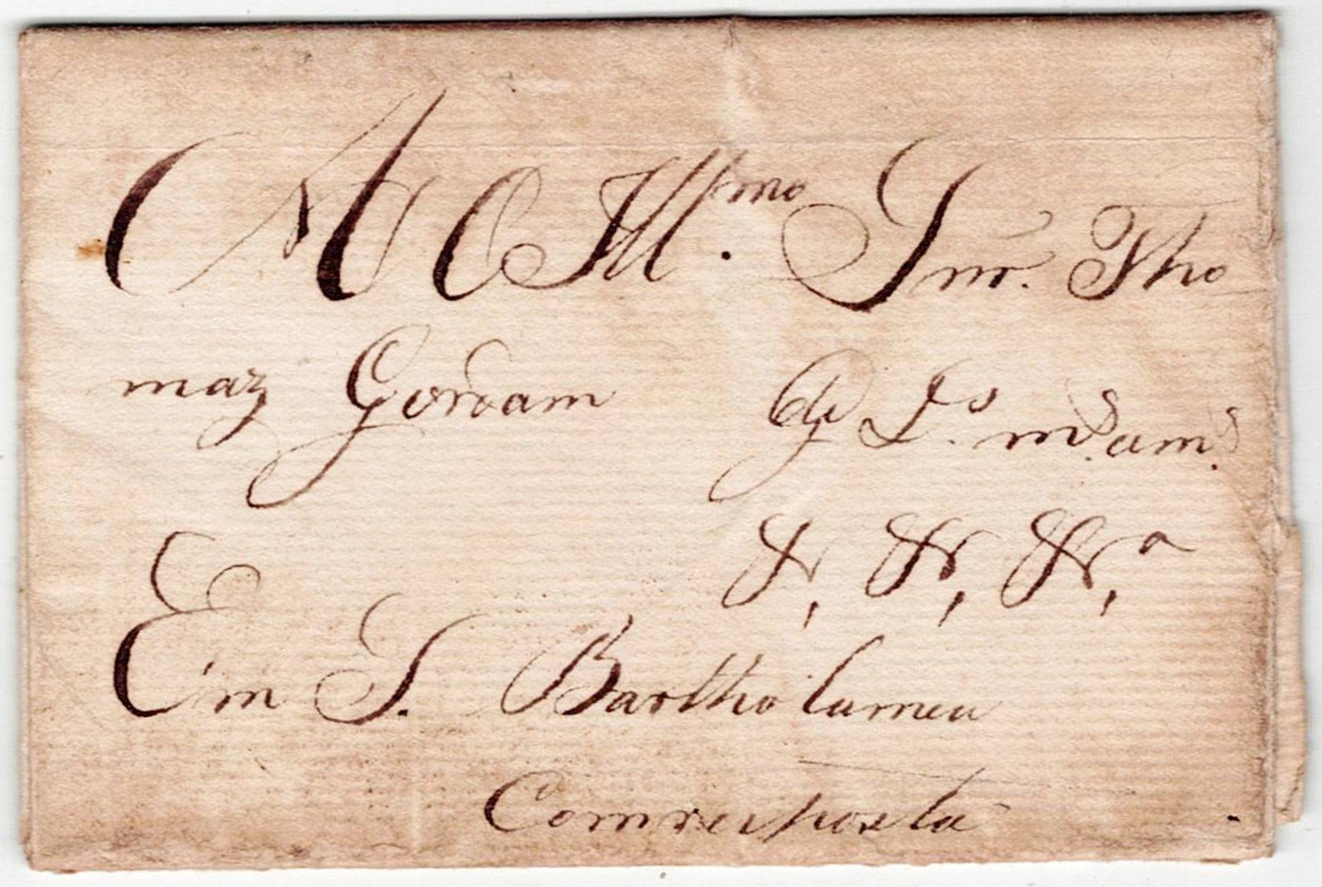 Ao Illmo. Snr. Tho
maz Gordam G Ds. ms. ams.
&, &, &,a
Em S. Bartholameu
Comresposta